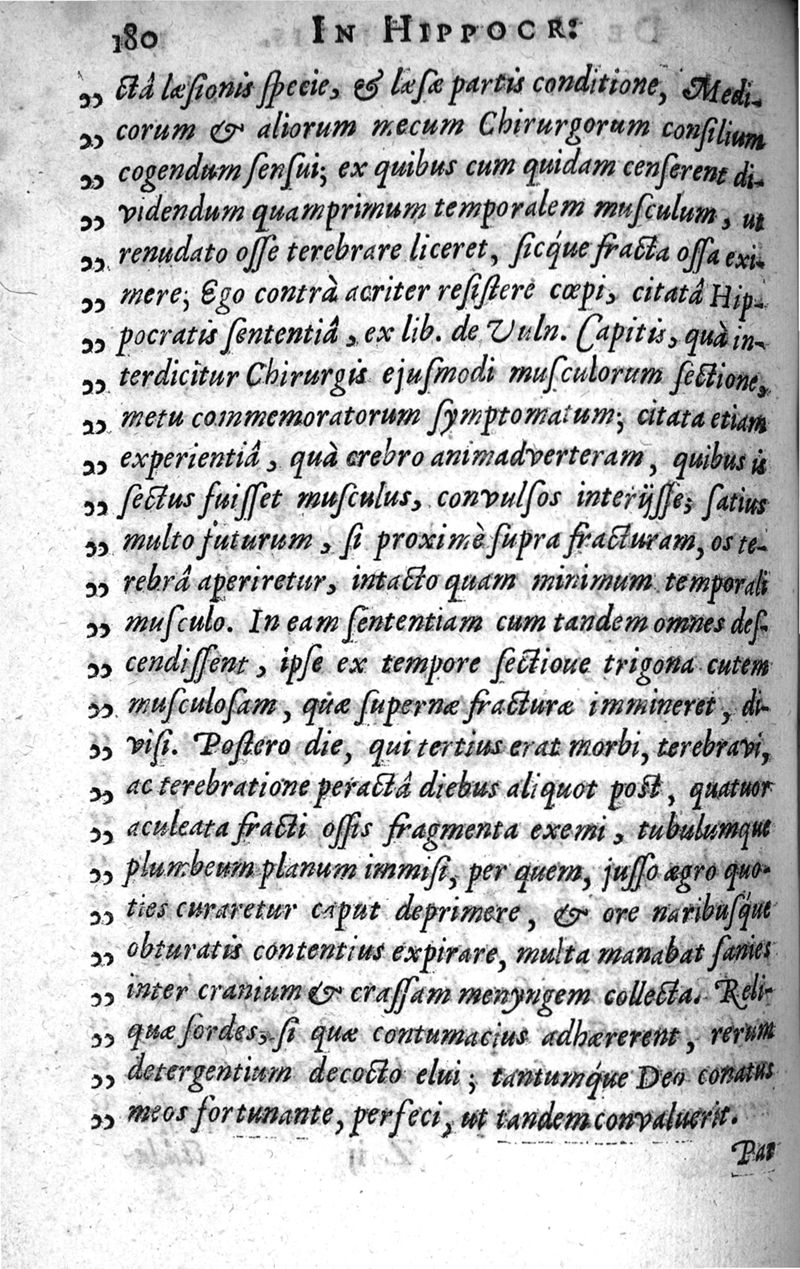 180 IN HIPPOCR:
„ ctâ læsionis specie, & læsæ partis conditione, Medi-
„ corum & aliorum mecum Chirurgorum consilium
„ cogendum sensui; ex quibus cum quidam censerent di-
„ videndum quamprimum temporalem musculum, ut
„ renudato osse terebrare liceret, sicq́ue fracta ossa exi-
„ mere; Ego contrà acriter resistere cœpi, citatâ Hip-
„ pocratis sententiâ, ex lib. de Vuln. Capitis, quà in-
„ terdicitur Chirurgis ejusmodi musculorum sectione,
„ metu commemoratorum symptomatum; citata etiam
„ experientiâ, quà crebro animadverteram, quibus is
„ sectus fuisset musculus, convulsos interijsse; satius
„ multo futurum, si proximè supra fracturam, os te-
„ rebrâ aperiretur, intacto quam minimum temporali
„ musculo. In eam sententiam cum tandem omnes des-
„ cendissent, ipse ex tempore sectioue trigona cutem
„ musculosam, quæ supernæ fracturæ immineret, di-
„ visi. Postero die, qui tertius erat morbi, terebravi,
„ ac terebratione peractâ diebus aliquot post, quatuor
„ aculeata fracti ossis fragmenta exemi, tubulumque
„ plumbeum planum immisi, per quem, jusso ægro quo-
„ ties curaretur caput deprimere, & ore naribusq́ue
„ obturatis contentius expirare, multa manabat sanies
„ inter cranium & crassam menyngem collecta. Reli-
„ quæ sordes, si quæ contumacius adhærerent, rerum
„ detergentium decocto elui; tantumq́ue Deo conatus
„ meos fortunante, perfeci, ut tandem convaluerit.
Par